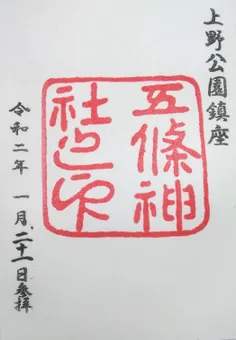 上野公園鎮座
五條神
社之印
令和二年 一月二十一日参拝